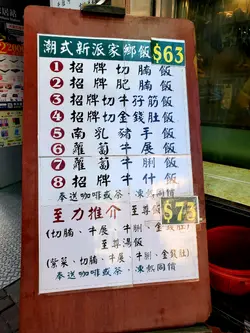 潮式新派家鄉飯 $63
1 招牌切腩飯
2 招牌肥腩飯
3 招牌切牛孖筋飯
4 招牌切金錢肚飯
5 南乳豬手飯
6 蘿蔔牛展飯
7 蘿蔔牛脷飯
8 招牌牛什飯
奉送咖啡或茶、凍熱同價
至力推介 至尊飯 $73
(切腩、牛展、牛脷、金錢肚)
至尊湯飯
(紫菜、切腩、牛展、牛脷、金錢肚)
奉送咖啡或茶、凍熱同價